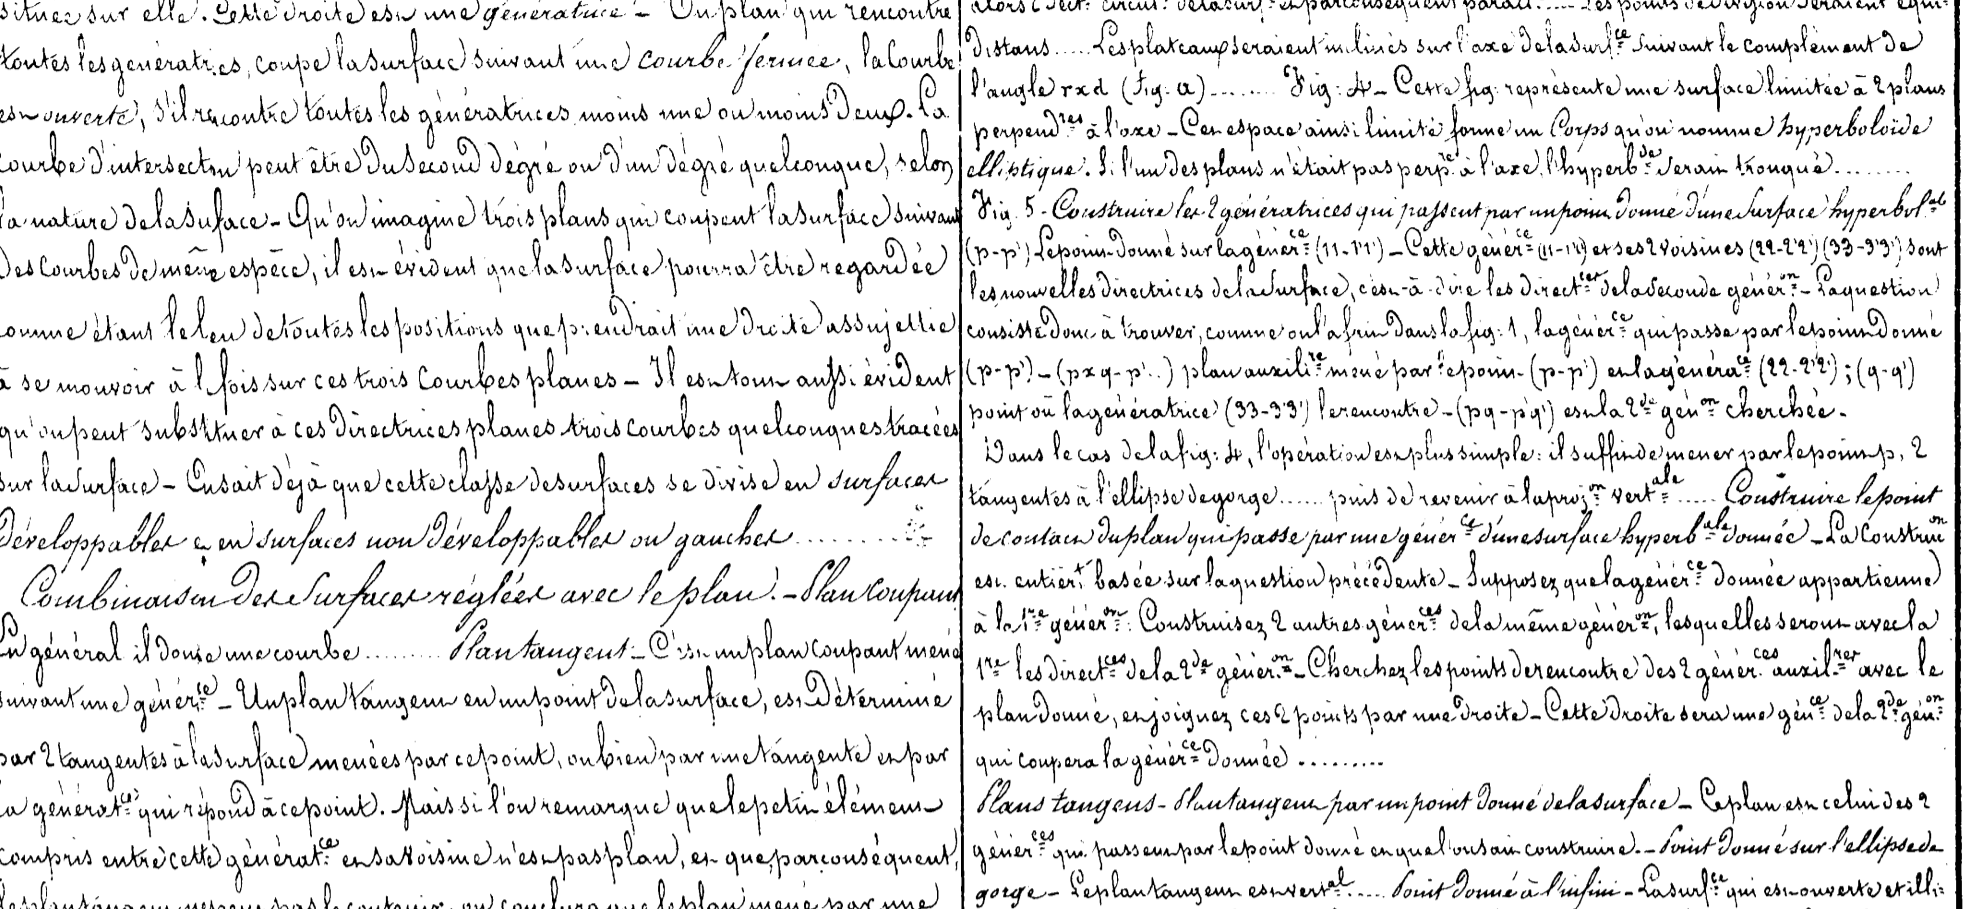 situées sur elle. Cette droite est une génératrice - Un plan qui rencontre
toutes les génératrices, coupe la surface suivant une courbe fermée, la Courbe
est ouverte, s'il rencontre toutes les génératrices moins une ou moins Deux. La
courbe d'intersection peut être du second dégré ou d'un dégré quelconque, selon
la nature de la surface - Qu'on imagine trois plans qui coupent la surface suivant
des courbes de même espèce, il est évident que la surface pourra être regardée
comme étant le lieu de toutes les positions que prendrait une droite assujettie
à se mouvoir à la fois sur ces trois Courbes planes - Il est tout aussi évident
qu'on peut substituer à ces Directrices planes trois courbes quelconques tracées
sur la surface - On sait déjà que cette classe de surfaces se divise en surfaces
développables et en surfaces non développables ou gauches ........
Combinaison des Surfaces réglées avec le plan. - Plan Coupant
En général il donne une courbe ........ Plan tangent - C'est un plan coupant mené
suivant une génér.ce - Un plan tangent en un point de la surface, est Déterminé
par 2 tangentes à la surface menées par ce point, ou bien par une tangente et par
la générat.ce qui répond à ce point. Mais si l'on remarque que le petit élément
compris entre cette générat.ce et sa voisine n'est pas plan, et que, par conséquent,
le plan tangent ne peut pas le contenir, on conclura que le plan mené par une
distans ..... Les plateaux seraient inclinés sur l'axe de la surf.ce suivant le complément de
l'angle rxd (fig: a) ........ Fig: 4 - Cette fig: représente une surface limitée à 2 plans
perpend.res à l'axe - Cet espace ainsi limité forme un Corps qu'on nomme hyperboloïde
elliptique. Si l'un des plans n'était pas perp.re à l'axe, l'hyperb.de serait tronqué ........
Fig. 5 - Construire les 2 génératrices qui passent par un point donné d'une surface hyperbol.ale
(p-p') Le point donné sur la génér.ce (11-1'1') - Cette génér.ce (11-1'1') et ses 2 voisines (22-2'2') (33-3'3') sont
les nouvelles directrices de la surface, c'est-à-dire les direct.ces de la seconde génér.on - La question
consiste donc à trouver, comme on l'a fait dans la fig: 1, la génér.ce qui passe par le point donné
(p-p') - (pxq-p'..) plan auxili.re mené par le point (p-p') et la généra.ce (22-2'2'); (q-q')
point où la génératrice (33-3'3') le rencontre - (pq-p'q') est la 2.de gén.on cherchée.
Dans le cas de la fig: 4, l'opération est plus simple: il suffit de mener par le point p, 2
tangentes à l'ellipse de gorge ...... puis de revenir à la proj.on vert.ale ..... Construire le point
de contact du plan qui passe par une génér.ce d'une surface hyperb.ale donnée - La Construc.on
est entièr.t basée sur la question précédente - Supposez que la génér.ce donnée appartienne
à la 1.re génér.on: Construisez 2 autres génér.ces de la même génér.on, lesquelles seront avec la
1.re les direct.ces de la 2.de génér.on - Cherchez les points de rencontre des 2 génér.ces auxil.res avec le
plan donné, et joignez ces 2 points par une droite - Cette droite sera une gén.ce de la 2.de gén.on
qui coupera la génér.ce Donnée .........
Plans tangens - Plan tangent par un point donné de la surface - Ce plan est celui des 2
génér.ces qui passent par le point donné et que l'on sait construire. - Point donné sur l'ellipse de
gorge - Le plan tangent est vert.al ..... Point donné à l'infini - La surf.ce qui est ouverte et illi-